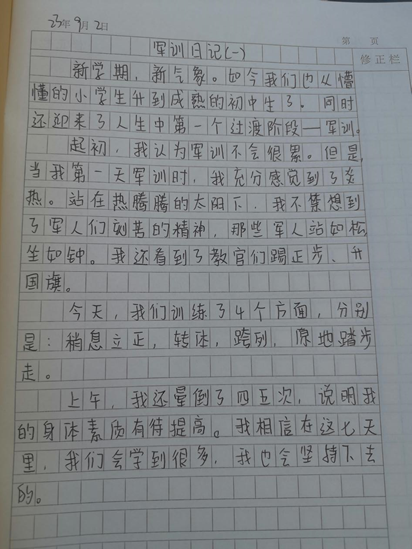 23年9月2日
第 页
军训日记(一)
修正栏
新学期，新气象。如今我们也从懵
懂的小学生升到成熟的初中生了。同时
还迎来了人生中第一个过渡阶段—军训。
起初，我认为军训不会很累。但是，
当我第一天军训时，我充分感觉到了炎
热。站在热腾腾的太阳下，我不禁想到
了军人们刻苦的精神，那些军人站如松
坐如钟。我还看到了教官们踢正步、升
国旗。
今天，我们训练了4个方面，分别
是：稍息立正，转体，跨列，原地踏步
走。
上午，我还晕倒了四五次，说明我
的身体素质有待提高。我相信在这七天
里，我们会学到很多，我也会坚持下去
的。